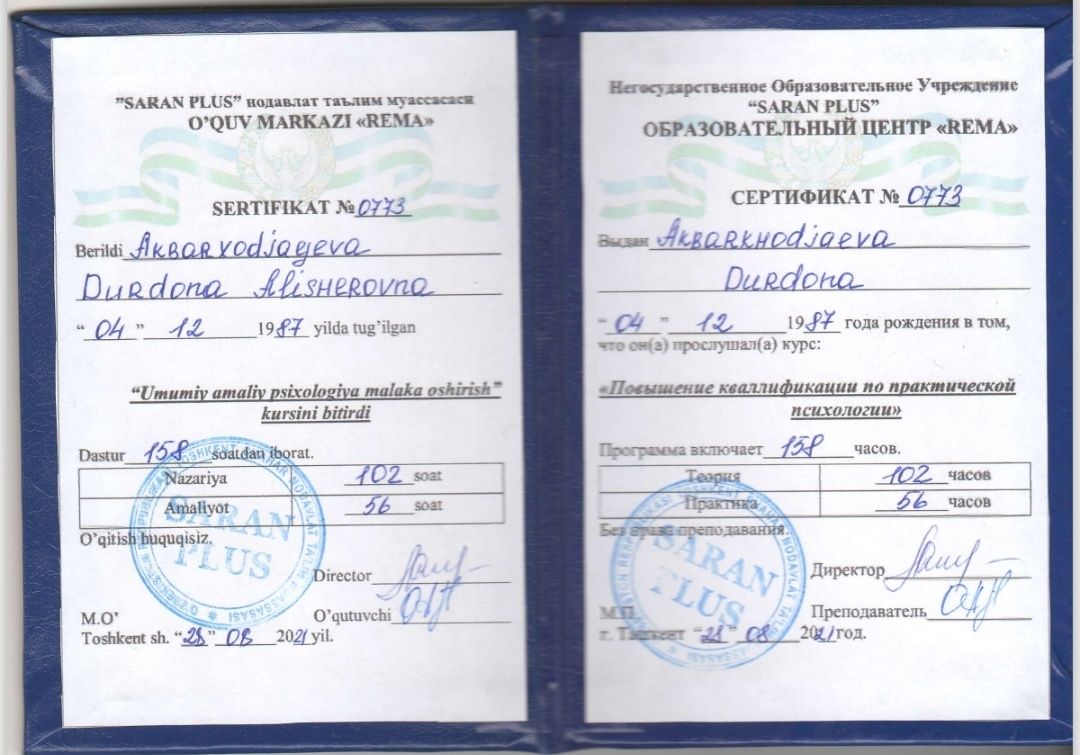 "SARAN PLUS" нодавлат таълим муассасаси
O'QUV MARKAZI «REMA»
SERTIFIKAT № 0773
Berildi Akbarxodjayeva
Durdona Alisherovna
"04" 12 1987 yilda tug'ilgan
"Umumiy amaliy psixologiya malaka oshirish"
kursini bitirdi
Dastur 158 soatdan iborat.
Nazariya 102 soat
Amaliyot 56 soat
O'qitish huquqisiz.
Director
M.O' O'qutuvchi
Toshkent sh. "28" 08 2021 yil.
SARAN
PLUS
Негосударственное Образовательное Учреждение
"SARAN PLUS"
ОБРАЗОВАТЕЛЬНЫЙ ЦЕНТР «REMA»
СЕРТИФИКАТ № 0773
Выдан Akbarkhodjaeva
Durdona
"04" 12 1987 года рождения в том,
что он(а) прослушал(а) курс:
«Повышение кваллификации по практической
психологии»
Программа включает 158 часов.
Теория 102 часов
Практика 56 часов
Без права преподавания.
Директор
М.П. Преподаватель
г. Ташкент "28" 08 2021 год.
SARAN
PLUS